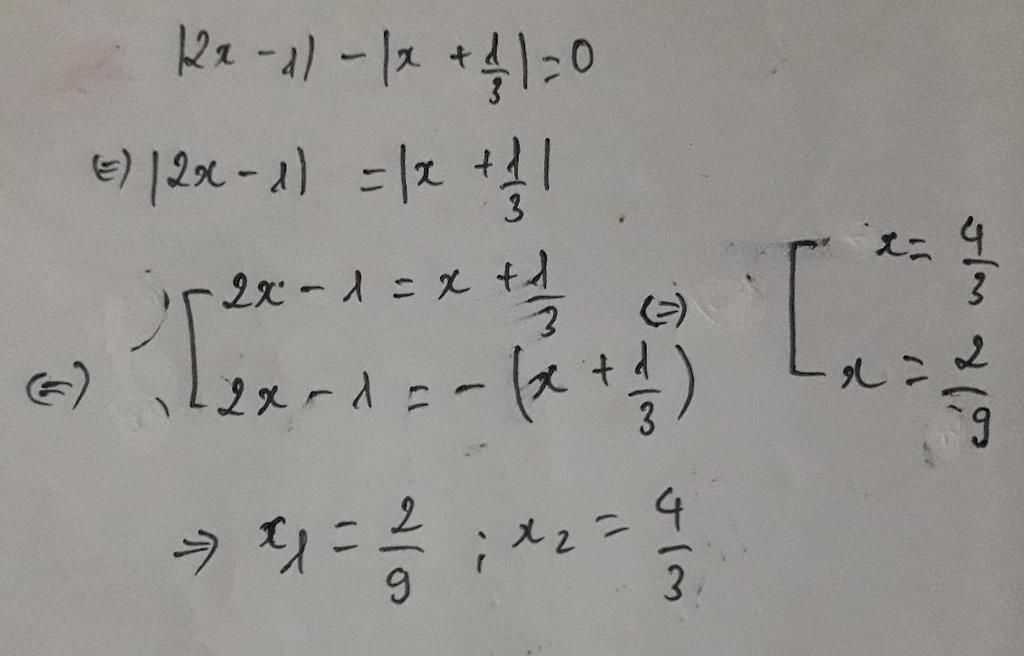 |2x - 1| - |x + 1/3| = 0
⇔ |2x - 1| = |x + 1/3|
⇔ [ 2x - 1 = x + 1/3 ⇔ [ x = 4/3
2x - 1 = - (x + 1/3) x = 2/9
⇒ x₁ = 2/9 ; x₂ = 4/3